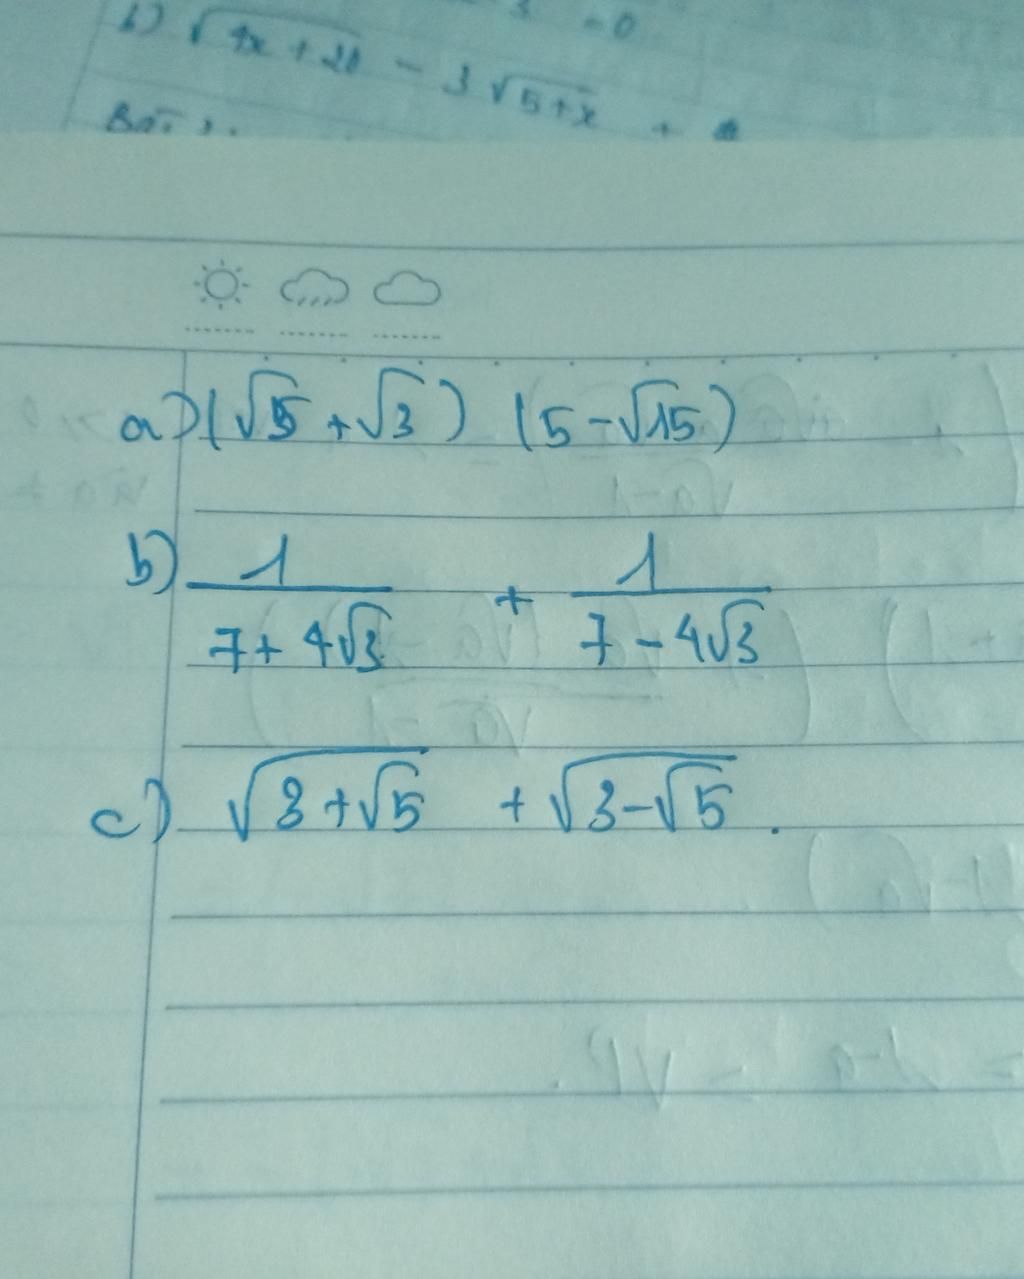 b) √4x + 20 - 3 √5+x +
= 0
a) (√5 + √3) (5 - √15)
b) 1/(7 + 4√3) + 1/(7 - 4√3)
c) √(3 + √5) + √(3 - √5) .